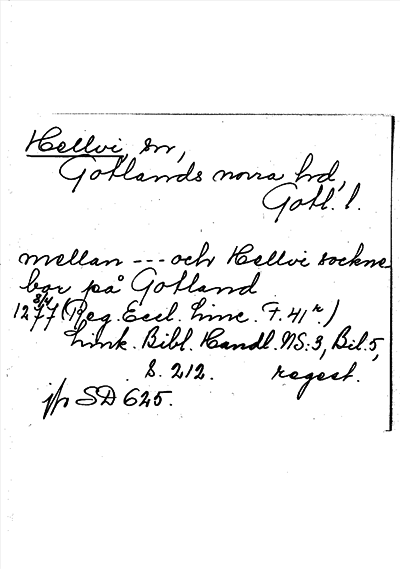 Hellvi, sn,
Gotlands norra hd,
Gotl. l.
mellan --- och Hellvi sockne-
bor på Gotland
8/4
1277 (Reg. Eccl. Linc. F. 41 r.)
Link. Bibl. Handl. NS: 3, Bil. 5,
S. 212. regest.
jfr SD 625.